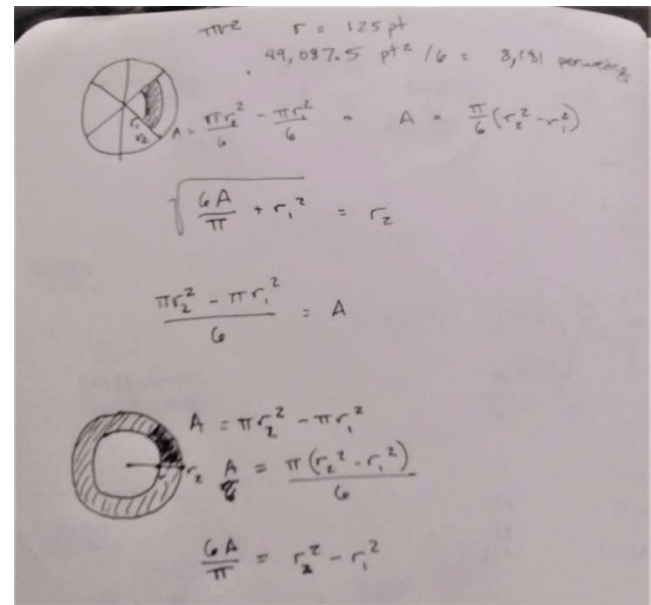 πr² r = 125 pt
49,087.5 pt² / 6 = 8,181 per wedge
r₁
r₂
A = πr₂²/6 - πr₁²/6 = A = π/6 (r₂² - r₁²)
√(6A/π + r₁²) = r₂
(πr₂² - πr₁²)/6 = A
A = πr₂² - πr₁²
r₂ A/6 = π(r₂² - r₁²)/6
6A/π = r₂² - r₁²